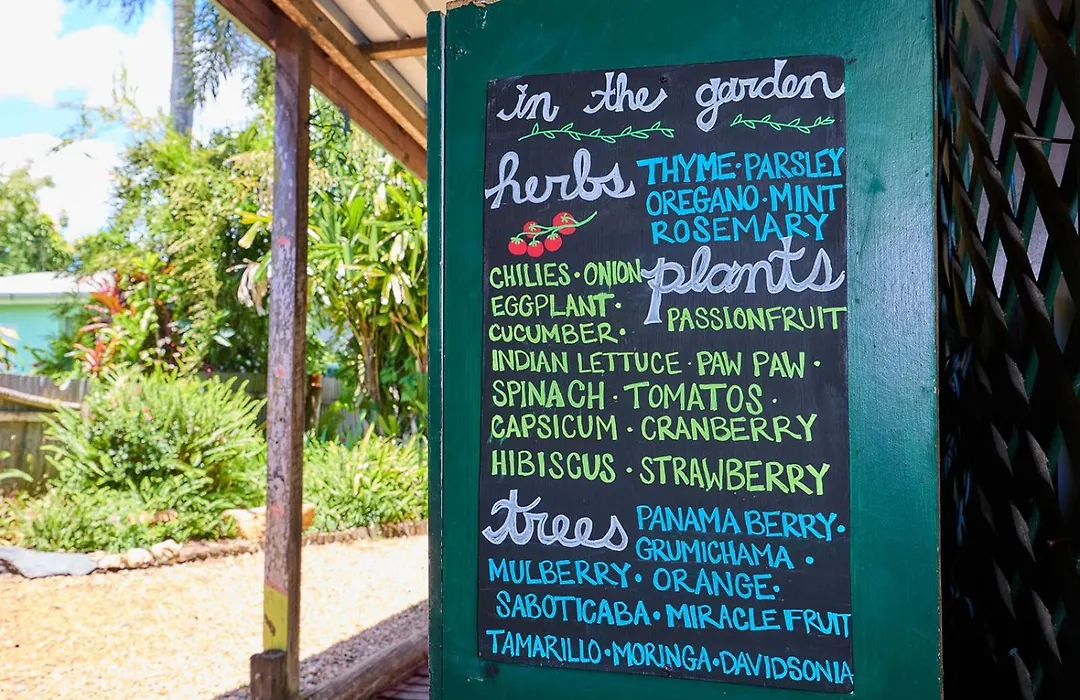 in the garden
herbs THYME · PARSLEY
OREGANO · MINT
ROSEMARY
plants
CHILIES · ONION
EGGPLANT ·
PASSIONFRUIT
CUCUMBER ·
INDIAN LETTUCE · PAW PAW ·
SPINACH · TOMATOS ·
CAPSICUM · CRANBERRY
HIBISCUS · STRAWBERRY
trees PANAMA BERRY ·
GRUMICHAMA ·
MULBERRY · ORANGE ·
SABOTICABA · MIRACLE FRUIT
TAMARILLO · MORINGA · DAVIDSONIA